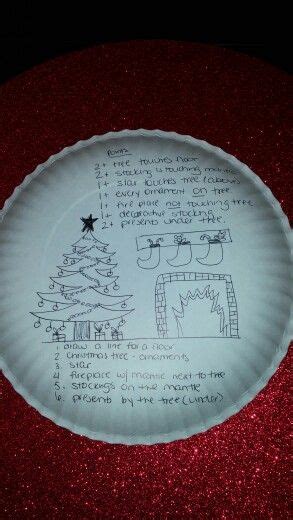 Points
2+ tree touches floor
2+ stocking is touching mantle
1+ star touches tree (above)
1+ every ornament on tree
1+ fire place not touching tree
1+ decorative stocking
2+ presents under tree.
1. draw a line for a floor
2. christmas tree - ornaments
3. star
4. fireplace w/ mantle next to tree
5. stockings on the mantle
6. presents by the tree (under)